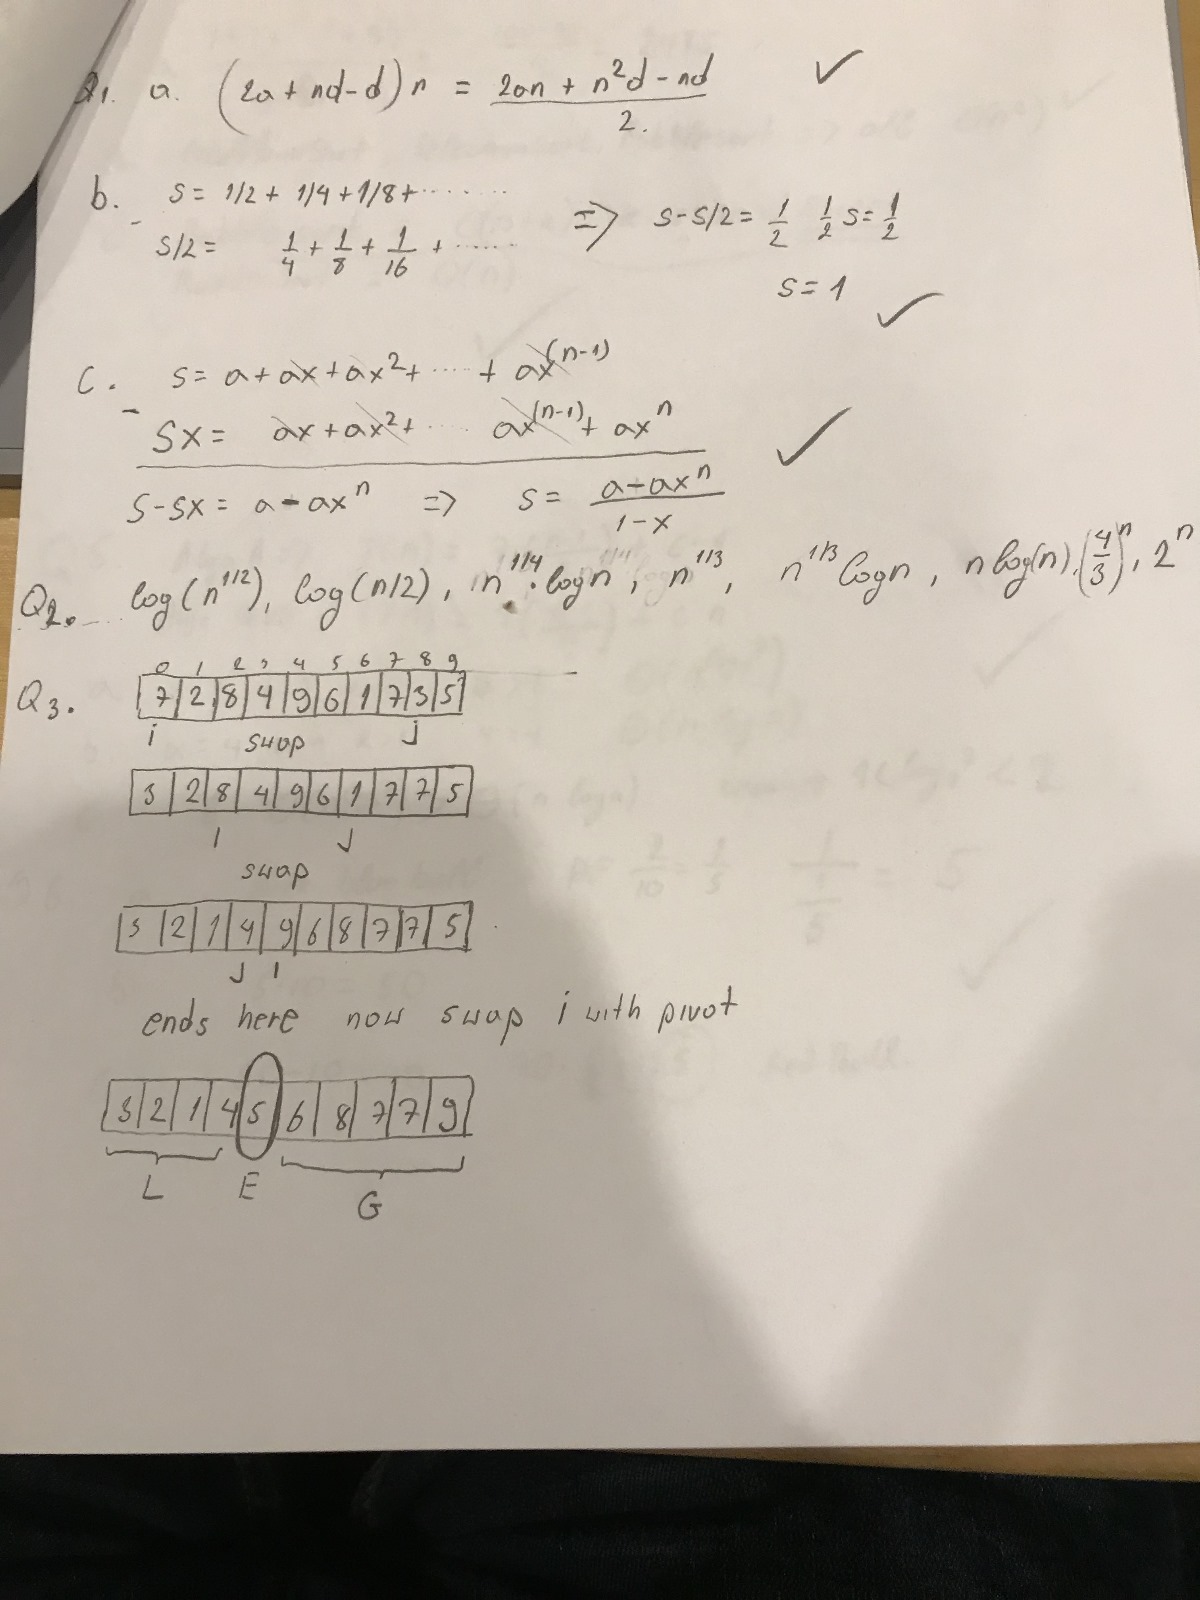 Q1. a. (2a + nd - d) n = (2an + n²d - nd)/2. ✓
b. S = 1/2 + 1/4 + 1/8 + ........
- S/2 = 1/4 + 1/8 + 1/16 + ...... => S - S/2 = 1/2 1/2 S = 1/2
S = 1 ✓
C. S = a + ax + ax² + .... + ax^(n-1)
- Sx = ax + ax² + .... ax^(n-1) + ax^n ✓
S - Sx = a - ax^n => S = (a - ax^n)/(1 - x)
Q2. log(n^1/2), log(n/2), n^1/4 · logn, n^1/3, n^1/3 logn, nlog(n), (4/3)^n, 2^n
0 1 2 3 4 5 6 7 8 9
Q3. 7 2 8 4 9 6 1 7 3 5
i swap j
3 2 8 4 9 6 1 7 7 5
i j
swap
3 2 1 4 9 6 8 7 7 5
j i
ends here now swap i with pivot
3 2 1 4 5 6 8 7 7 9
L E G